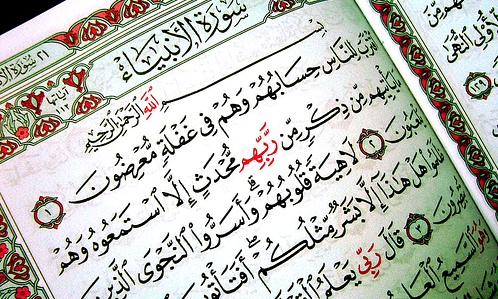 ٢١ سورة الأ
سُورَةُ الأَنبِيَاءِ
آياتها ١١٢
بِسْمِ ٱللَّهِ ٱلرَّحْمَٰنِ ٱلرَّحِيمِ
ٱقْتَرَبَ لِلنَّاسِ حِسَابُهُمْ وَهُمْ فِى غَفْلَةٍ مُّعْرِضُونَ ١
مَا يَأْتِيهِم مِّن ذِكْرٍ مِّن رَّبِّهِم مُّحْدَثٍ إِلَّا ٱسْتَمَعُوهُ وَهُمْ
يَلْعَبُونَ ٢ لَاهِيَةً قُلُوبُهُمْ وَأَسَرُّوا۟ ٱلنَّجْوَى ٱلَّذِينَ
ظَلَمُوا۟ هَلْ هَٰذَآ إِلَّا بَشَرٌ مِّثْلُكُمْ أَفَتَأْتُو
تُبْصِرُونَ ٣ قَالَ رَبِّى يَعْلَمُ ٱلْ
ٱلسَّمِيعُ ٱلْعَلِ